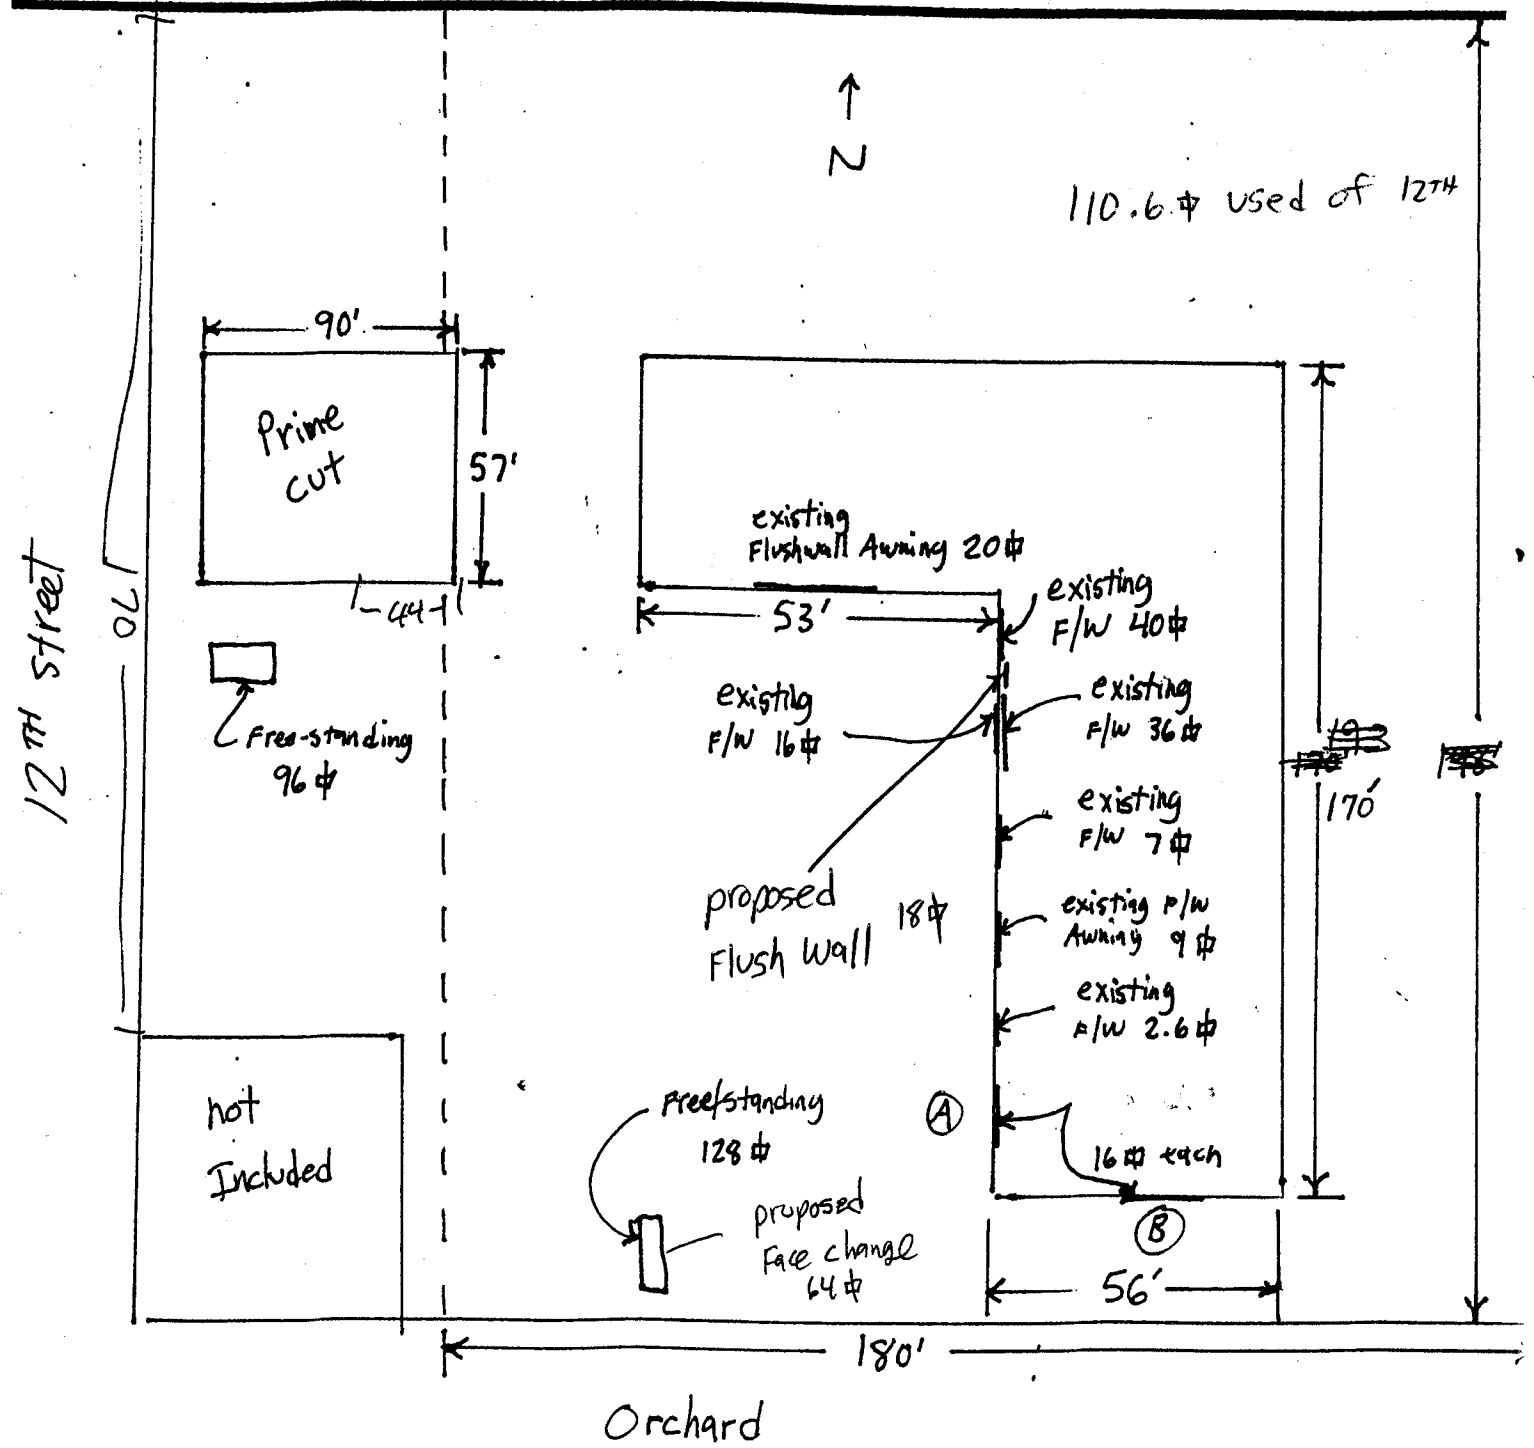 N
110.6 ⏍ used of 12TH
90'
Prime
cut
57'
44
170
12TH street
Free-standing
96 ⏍
existing
Flushwall Awning 20 ⏍
53'
existing
F/W 40 ⏍
existing
F/W 16 ⏍
existing
F/W 36 ⏍
193
170'
existing
F/W 7 ⏍
proposed
Flush Wall 18 ⏍
existing F/W
Awning 9 ⏍
existing
F/W 2.6 ⏍
not
Included
Free/standing
128 ⏍
A
16 ⏍ each
B
proposed
Face change
64 ⏍
56'
180'
Orchard